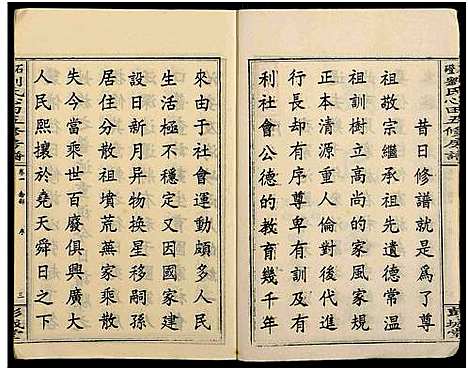 劉氏心田五修房譜
昔日修譜就是爲了尊
祖敬宗繼承祖先遺德常溫
祖訓樹立高尚的家風家規
正本清源重人倫對後代進
行長却有序尊卑有訓自强
利社會公德的教育幾千年
彭城堂
來由于社會動蕩多人民
生活極不穩定又因國家建
設日新月异物換星移嗣孫
居住分散祖墳荒蕪家乘散
失今當乘世百廢俱興廣大
人民熙攘於堯天舜日之下
劉氏心田五修房譜
卷一
序
三
彭城堂